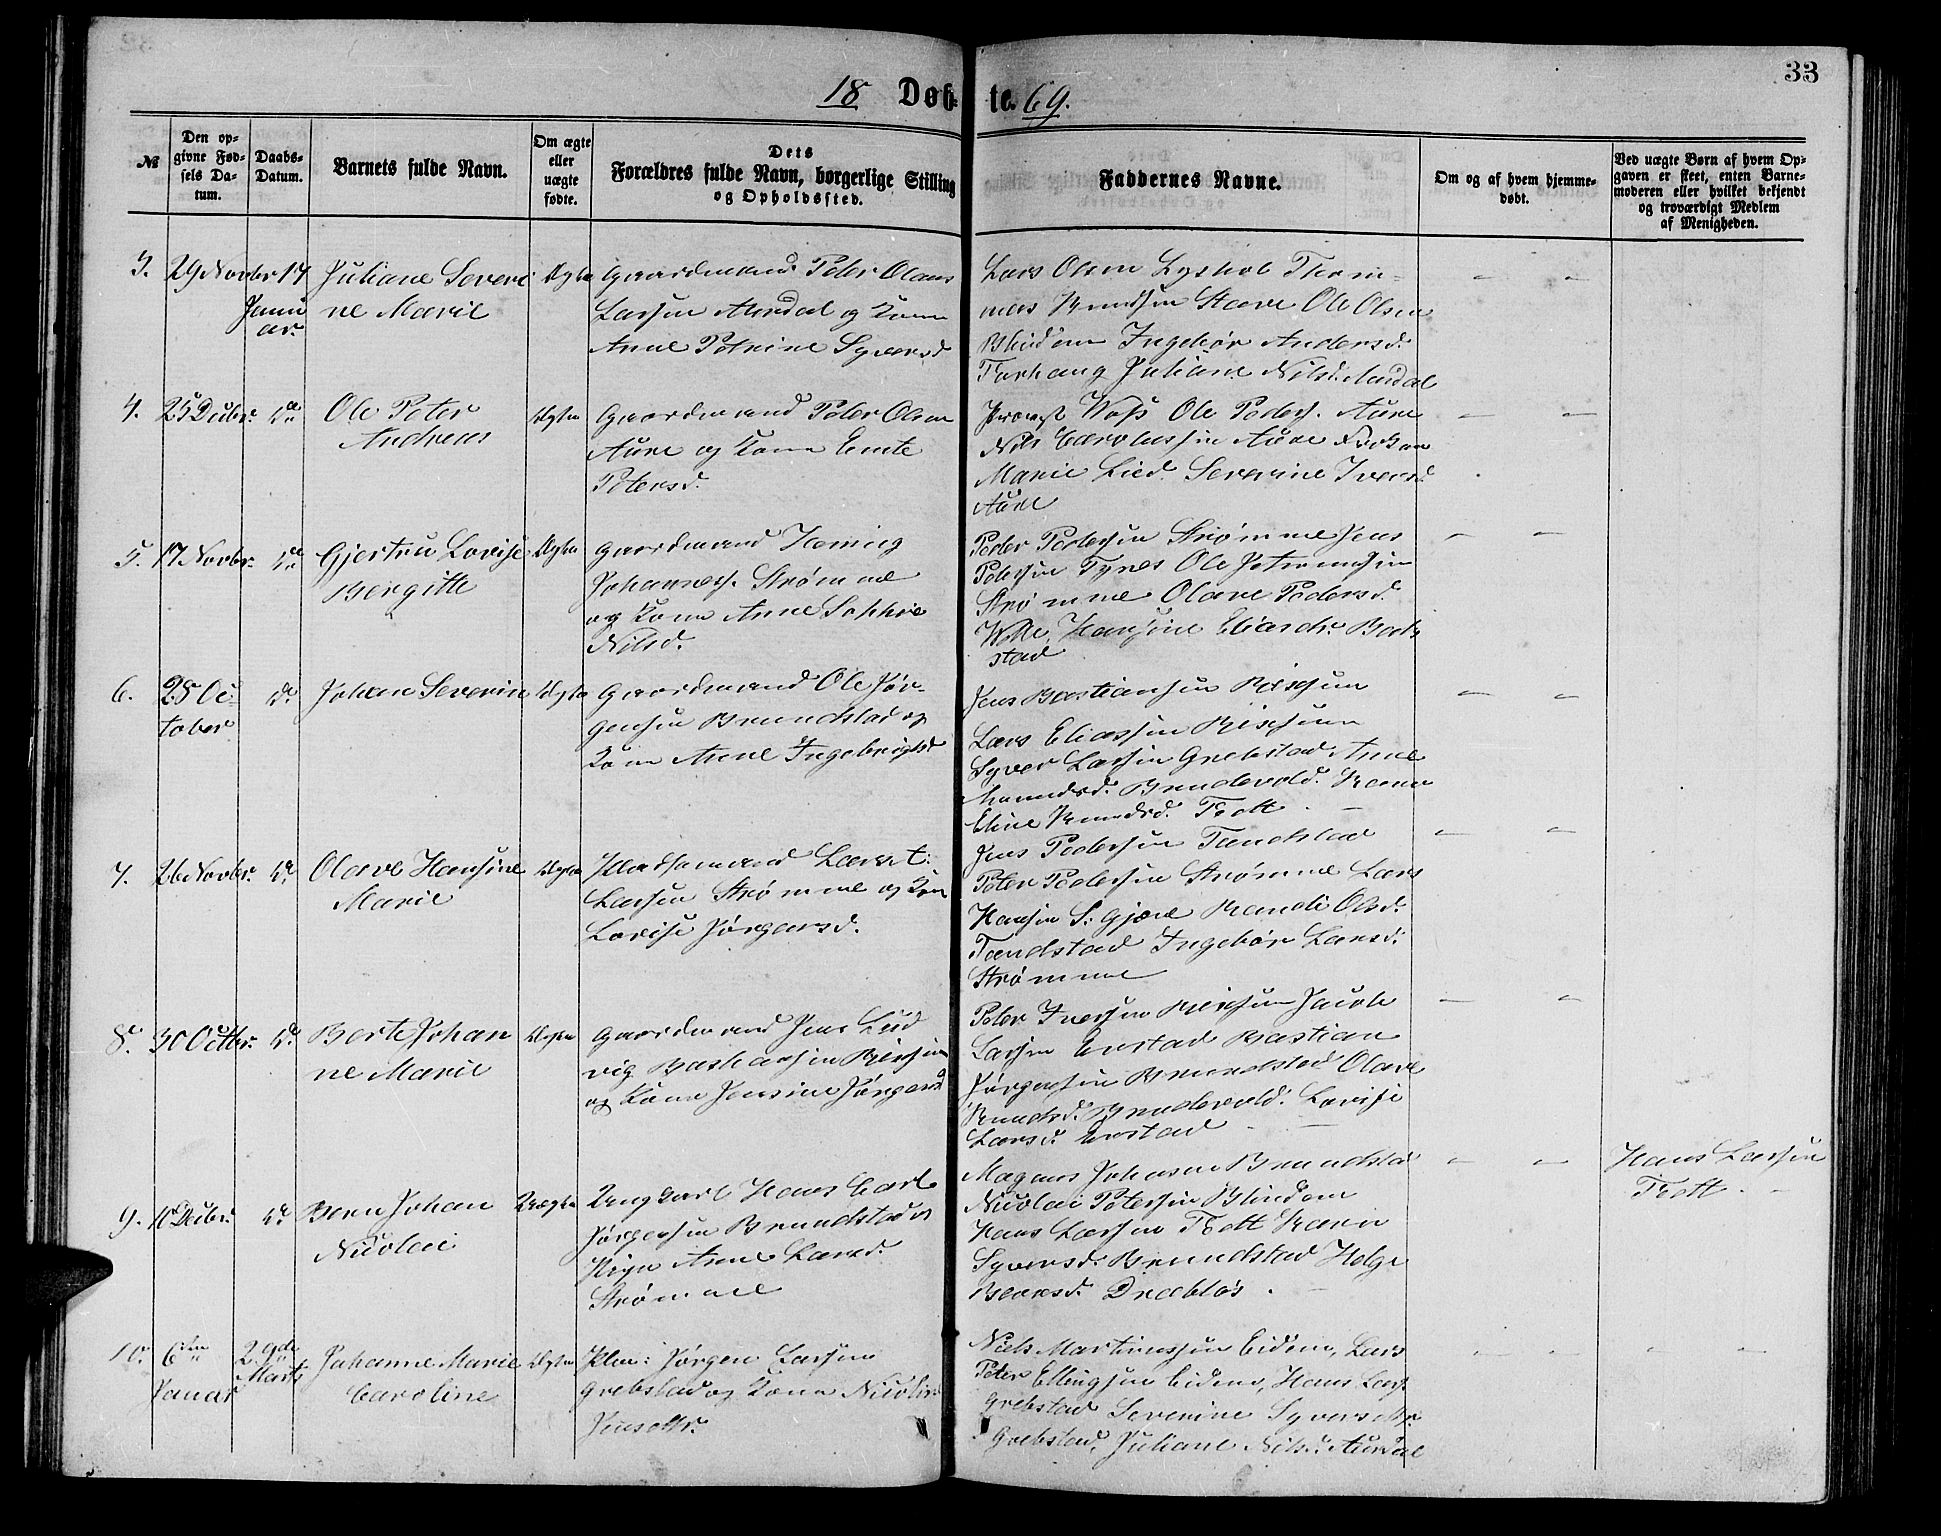 33
18 Døb- te. 69.
№
Den opgivne Fødsels Datum.
Daabs-Datum.
Barnets fulde Navn.
Om ægte eller uægte fødte.
Dets Forældres fulde Navn, borgerlige Stilling og Opholdssted.
Faddernes Navne.
Om og af hvem hjemmedøbt.
Ved uægte Børn af hvem Opgaven er skeet, enten Barnemoderen eller hvilket bekjendt og troværdigt Medlem af Menigheden.
3. 29 Novbr 17 Januar
Juliane Severine Marie
Ægte
Gaardmand Peter Olaus
Larsen Aursdal og Kone
Anne Petrine Syversd
Lars Olsen Lyshol Thom-
mas Knudsen Stave Ole Olsen
Blindem Ingebør Andersd.
Juliane Nilsd. Aursdal
4. 25 Decbr. do
Ole Peter
Andreas
Ægte
Gaardmand Peter Olsen
Aure og Kone
Petersd.
Provst Ole Peders. Aure
Nils Carolussen Aure
Marie Lied. Severine Ivers
Aure
5. 17 Novbr. do
Gjertru Lovise
Bergitte
Ægte
Gaardmand Heming
Johanness. Strømme
og Kone Anne Sophie
Nilsd.
Peder Pedersen Strømme Jens
Petersen Tynes Ole
Strømme Olave Pedersd.
Welle. Hansine Eliasdr. Bakstad
6. 28 October do
Johan Severin
Ægte
Gaardmand Ole Jør-
gensen Brundstad og
Kone Anne Ingebrigtsd
Jens Bastiansen
Lars Eliassen
Syver Larsen Grebstad Anne
Brudevold.
Eline Knudsd. Trett
7. 26 Novbr. do
Olave Hansine
Marie
Ægte
Pladsemand
Larsen Strømme og Kone
Lovise Jørgensd.
Jens Pedersen Tandstad
Peter Pedersen Strømme Lars
Hansen S: Gjære Randi Olsd.
Tandstad Ingebør Larsd.
Strømme
8. 30 Octbr. do
Berte Johan
ne Marie
Ægte
Gaardmand Jens Lud
vig Bastiansen
og Kone Jensine Jørgensd
Peter Iversen Jacob
Larsen Bastian
Jørgensen Brundstad Olave
Knudsd. Brudevold. Lovise
Larsd.
9. 10 Decbr. do
Bern Johan
Nicolai
Uægte
Ungkarl Hans Carl
Jørgensen Brundstad og
Pige Anne Larsd.
Strømme
Magnus Johnsen Brundstad
Nicolai Petersen Blindem
Hans Larsen Trett Karen
Syversd. Brundstad Helge
Drabløs
Hans Larsen
Trett
10. 6te Januar 29de Marts
Johanne Marie
Caroline
Ægte
Plm: Jørgen Larsen
Grebstad og Kone Nicoline
Jensdtr.
Niels Martinussen Eidem, Lars
Peter Ellingsen Eidem, Hans Lars.
Grebstad Severine Syversdtr.
Grebstad, Juliane Nilsd. Aursdal